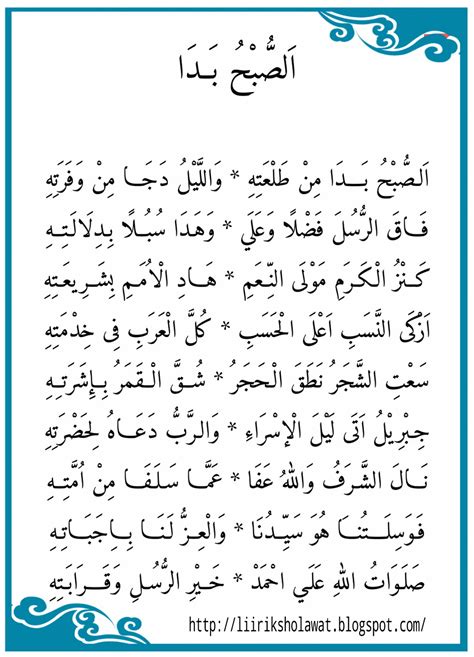 اَلصُّبْحُ بَـدَا
اَلصُّبْحُ بَـــدَا مِنْ طَلْعَتِهِ * وَاللَّيْلُ دَجَـا مِنْ وَفَرَتِهِ
فَـاقَ الرُّسُلَ فَضْلًا وَعَلَي * وَهَدَا سُبُـلًا بِـدِلَالَتِـهِ
كَـنْزُ الْكَـرَمِ مَوْلَى النِّـعَمِ * هَـادِ الْاُمَـمِ بِشَـرِيـعَتِهِ
اَزْكَى النَّسَبِ اَعْلَى الْحَسَبِ * كُلَّ الْعَرَبِ فِى خِدْمَتِهِ
سَعَتِ الشَّجَرُ نَطَقَ الْحَجَرُ * شُـقَّ الْـقَمَرُ بِـإِشَرَتِـهِ
جِـبْرِيْلُ اَتَى لَيْلَ الْإسْرَاءِ * وَالـرَّبُّ دَعَـاهُ لِحَضْرَتِهِ
نَـالَ الشَّرَفُ وَاللهُ عَفَا * عَمَّـا سَـلَـفَـا مِنْ اُمَّتِـهِ
فَـوَسِلَــتُـنـا هُوَ سَيِّـدُنَـا * وَالْعِـزُّ لَنَـا بِـاِجَبَـاتِـهِ
صَلَـوَاتُ اللهِ عَلَـي اَحْمَدْ * خَـيْرِ الرُّسُـلِ وَقَـرَابَـتِهِ
http://liiriksholawat.blogspot.com/